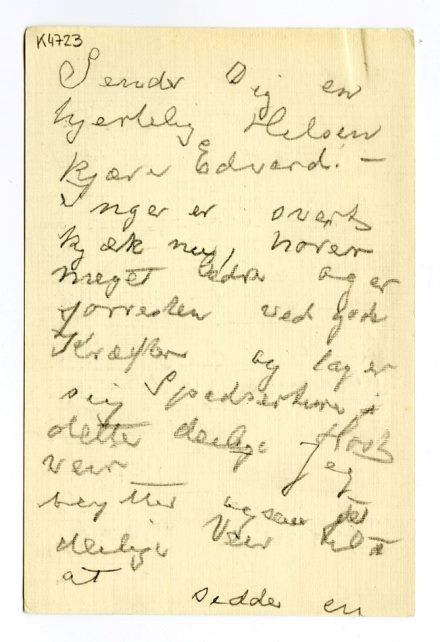 K4723
Sender Dig en
hjertelig Hilsen
kjære Edvard! –
Inger er svært
kjæk nu, hører
meget bedre og er
forresten ved gode
Kræfter og tager
sig Spadserture i
dette deilige Høst
veir Jeg
benytter ogsaa det
deilige Veir til
at
sidde en